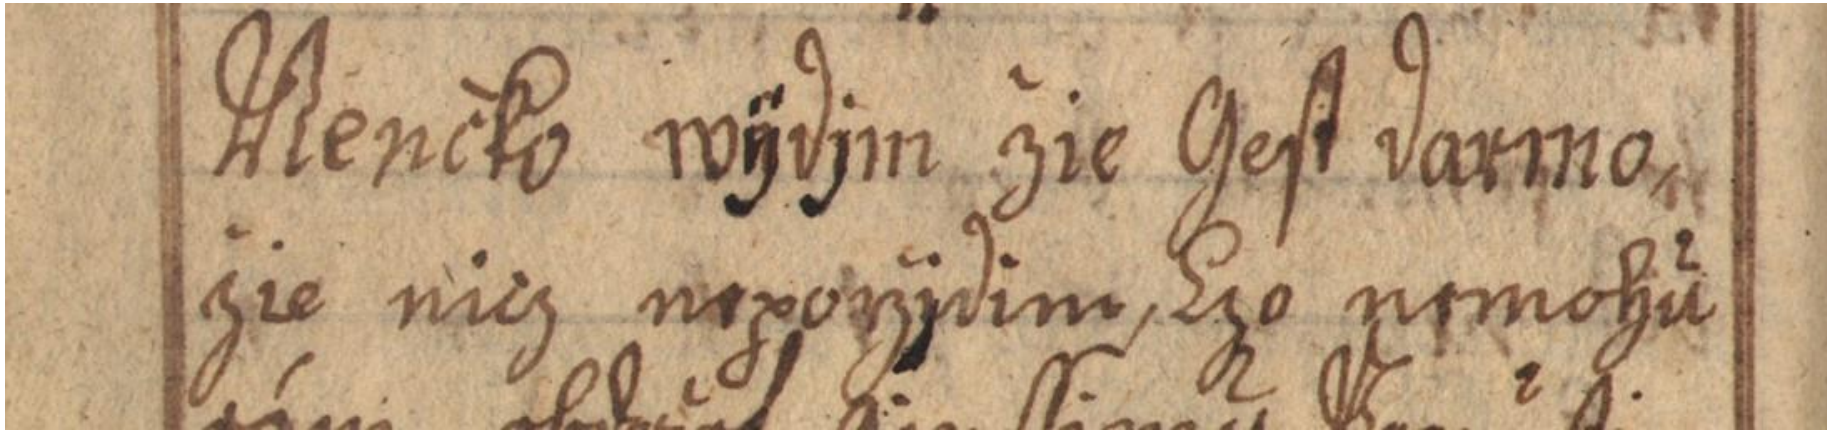 Menčko wÿdjm žie Gest darmo,
žie nicz neporžjdim, Czo nemohu